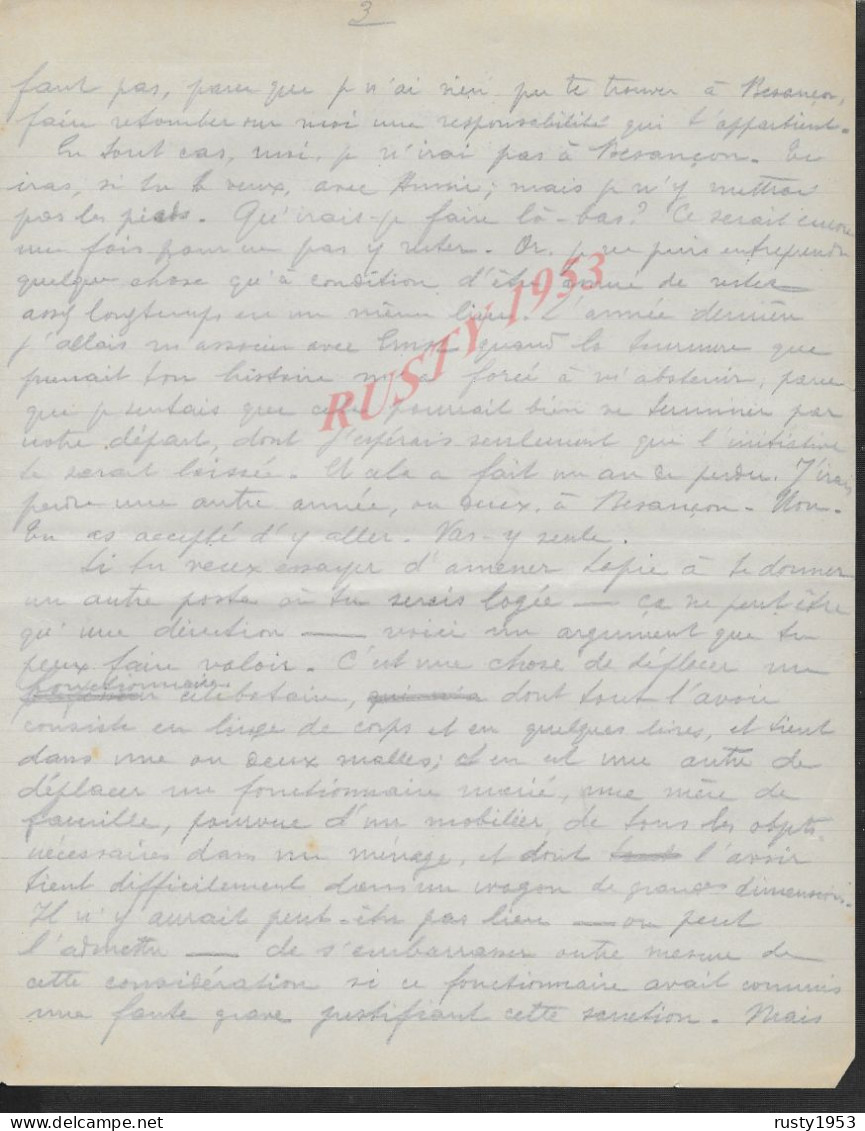 3
faut pas, parce que je n'ai rien pu te trouver à Besançon,
faire retomber sur moi une responsabilité qui t'appartient.
En tout cas, moi, je n'irai pas à Besançon. Tu
iras, si tu le veux, avec Annie; mais je n'y mettrai
pas les pieds. Qu'irais-je faire là-bas? Ce serait encore
une fois pour ne pas y rester. Or, je ne puis entreprendre
quelque chose qu'à condition d'être assuré de rester
assez longtemps en un même lieu. L'année dernière
j'allais m'associer avec quand la tournure que
prenait ton histoire m'a forcé à m'abstenir, parce
que je sentais que cela pourrait bien se terminer par
notre départ, dont j'espérais seulement que l'initiative
te serait laissée. Et cela a fait un an de perdu. J'irais
perdre une autre année, ou deux, à Besançon. Non.
Tu as accepté d'y aller. Vas-y seule.
Si tu veux essayer d'amener Lapie à te donner
un autre poste où tu serais logée — ça ne peut être
qu'une direction — voici un argument que tu
peux faire valoir. C'est une chose de déplacer un
fonctionnaire célibataire, dont tout l'avoir
consiste en linge de corps et en quelques livres, et tient
dans une ou deux malles; et en est une autre de
déplacer un fonctionnaire marié, une mère de
famille, pourvue d'un mobilier, de tous les objets
nécessaires dans un ménage, et dont tout l'avoir
tient difficilement dans un wagon de grandes dimensions.
Il n'y aurait peut-être pas lieu — on peut
l'admettre — de s'embarrasser outre mesure de
cette considération si ce fonctionnaire avait commis
une faute grave justifiant cette sanction. Mais
RUSTY 1953
rusty1953